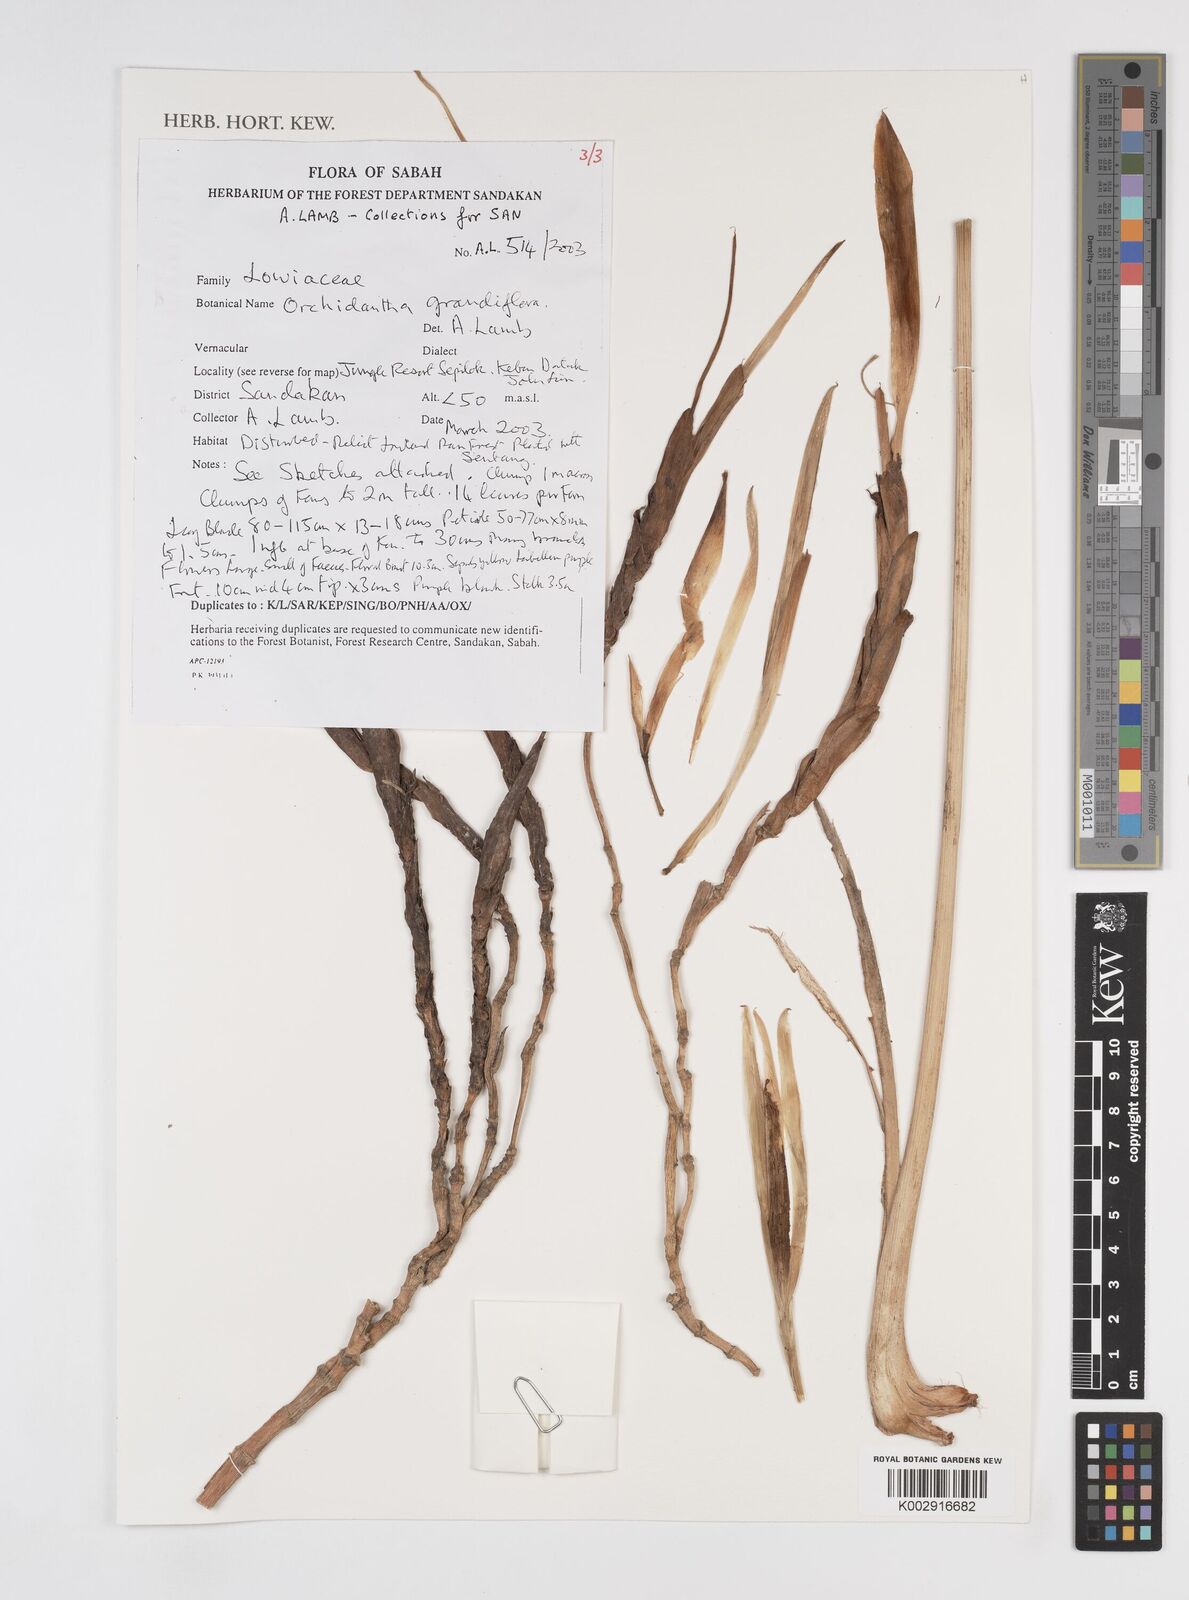 HERB. HORT. KEW.
3/3
FLORA OF SABAH
HERBARIUM OF THE FOREST DEPARTMENT SANDAKAN
A. LAMB – Collections for SAN
No. A.L. 514/2003
Family Lowiaceae
Botanical Name Orchidantha grandiflora.
Det. A. Lamb
Vernacular Dialect
Locality (see reverse for map) Jungle Resort Sepilok. Kebun Datuk
John Lim.
District Sandakan Alt. <50 m.a.s.l.
Collector A. Lamb. Date March 2003.
Habitat Disturbed - Relict Lowland Rain Forest Planted with
Sentang
Notes : See Sketches attached. Clump 1 m across
Clumps of Fans to 2m tall. 14 leaves per Fan
Leaf Blade 80-115cm x 13-18cms Petiole 50-77cm x 8mm
to 1.5cm - Infls at base of Fan. to 30cms Many branches
Flowers large. Smell of Faeces. Floral Bract 10.5cm. Sepals yellow Labellum purple
Fruit. 10cm 4cm tip. x 3cms Purple black. Stalk 3.5cm
Duplicates to : K/L/SAR/KEP/SING/BO/PNH/AA/OX/
Herbaria receiving duplicates are requested to communicate new identifi-
cations to the Forest Botanist, Forest Research Centre, Sandakan, Sabah.
inches
centimeters
Don Williams
M001011
Kew
Royal Botanic Gardens
copyright reserved
0 1 2 3 4 5 6 7 8 9 10
cm
ROYAL BOTANIC GARDENS KEW
K002916682